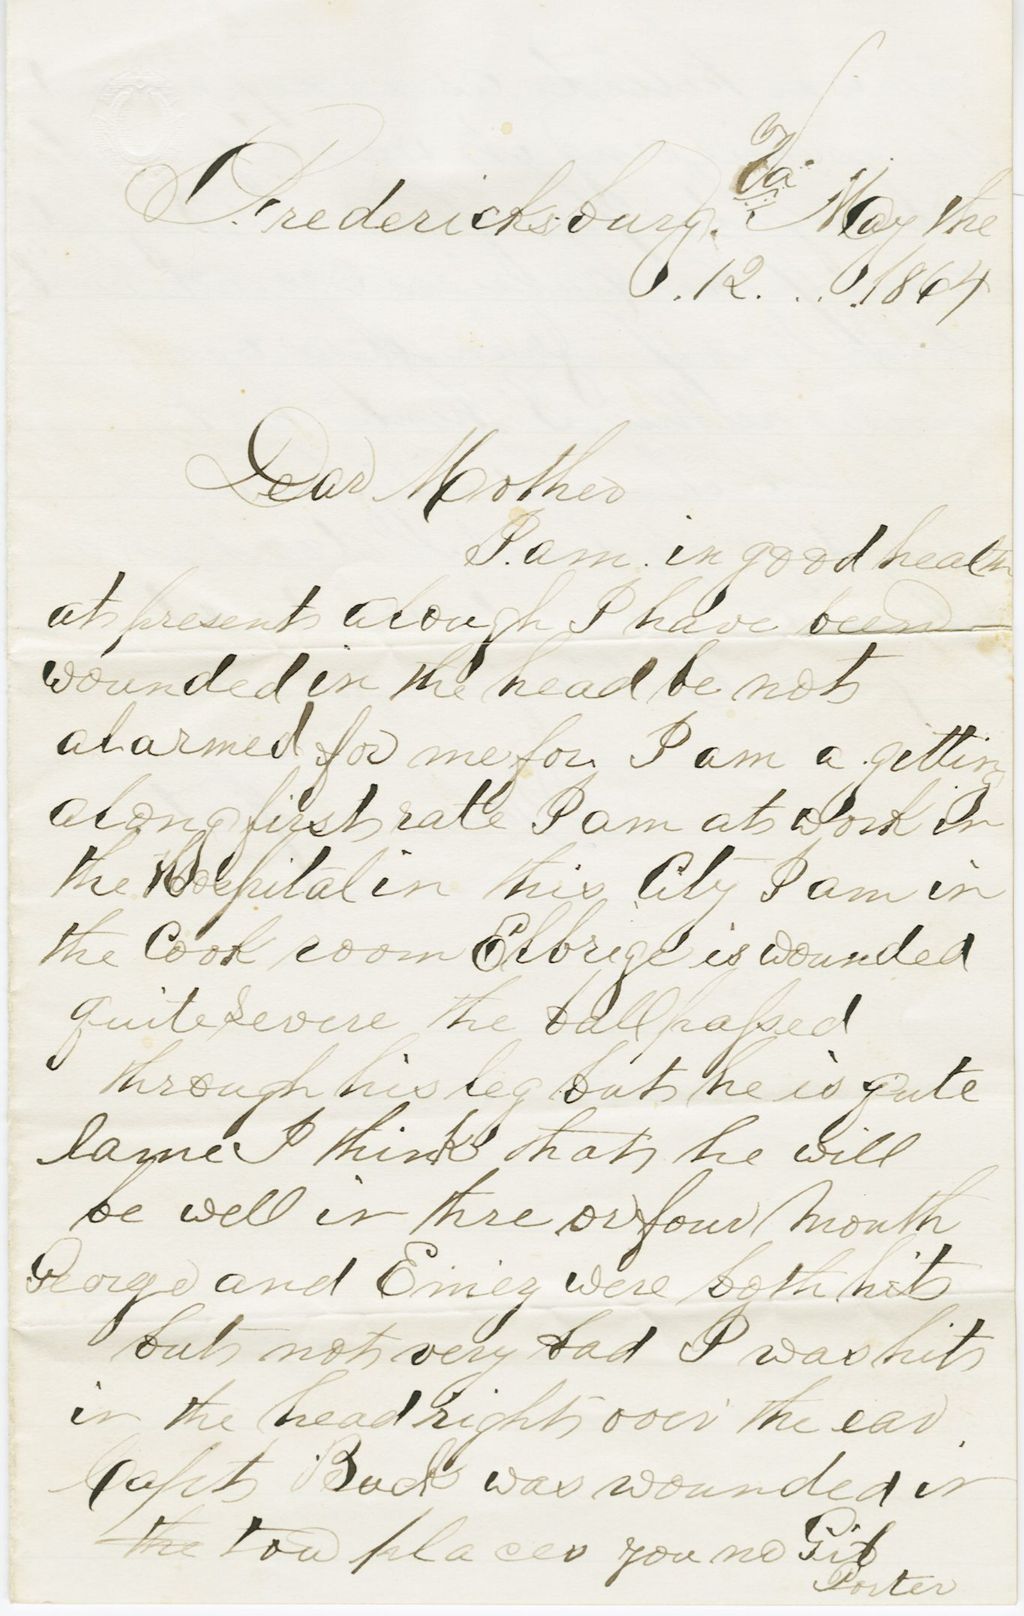 Fredericksburg. Va May the
.12. . . .1864
Dear Mother
I am in good health
at present alough I have been
wounded in the head be not
alarmed for me for I am a getting
along first rate I am at work in
the Hospital in this City I am in
the Cook room Elbrige is wounded
quite severe the ball passed
through his leg but he is qute
lame I think that he will
be well in thre or four month
George and Emiry were both hit
but not very bad I was hit
in the head right over the ear
Capt Buck was wounded in
the tow places you no Gib
Porter